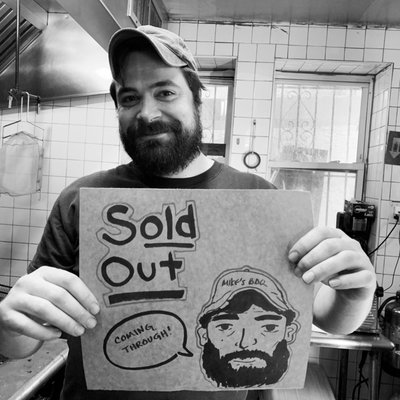 Sold
Out
COMING
THROUGH!
MIKE'S BBQ